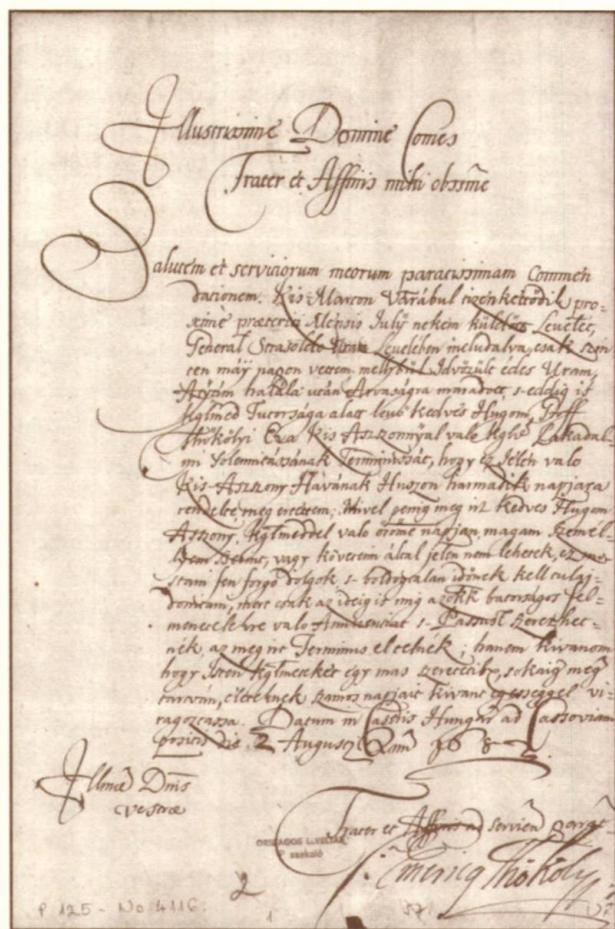 Illustrissime Domine Comes
Frater et Affinis mihi obssme
Salutem et serviciorum meorum paratissimam Commen
dationem. Kis Marton Várábul tizenkettödik pro-
xime præteriti Mensis July nekem küldött Levelét,
General Strasoldo Uram Levelében includalva, csak szin-
tén máy napon vettem mellybül Idvözült édes Uram
Atyám halála után Árvaságra maradott, s-eddig is
kglmed Tutorsága alatt levö kedves Húgom, Groff
Thököly Eva Kis Aszonnyal való Lakadal-
mi Solemnitássának Terminussát, hogy ez jelen való
Kis-Aszony Havának Huszon harmadik napjára
rendelte meg értettem; Mivel penig meg irt kedves Hugom
Aszony, kglmeddel való öröme napján, magam szemel-
vagy követem által jelen nem lehetek, ez
stani fen forgó dolgok s-boldogtalan idönek kell tulaj-
donitani, mert csak az ideig is míg azokk batorságos fel-
menetelekre való s-Passust szerezhet-
nék, az meg irt Terminus el telnék; hanem kivánom
hogy Isten kglmeteket egy mas szeretetib, sokaig meg
tartván, életeknek számos napjait kivánt egésséggel vi-
ragoztassa. Datum in Castris Hungar ad Cassoviam
positis die 2 Augusti Anno 168
Illmæ Dnis
Vestræ
Frater et Affinis ad serviend parat
Emericq Thököly
ORSZÁGOS LEVÉLTÁR
P szekció
2
P 125 - No 4116.
1
57